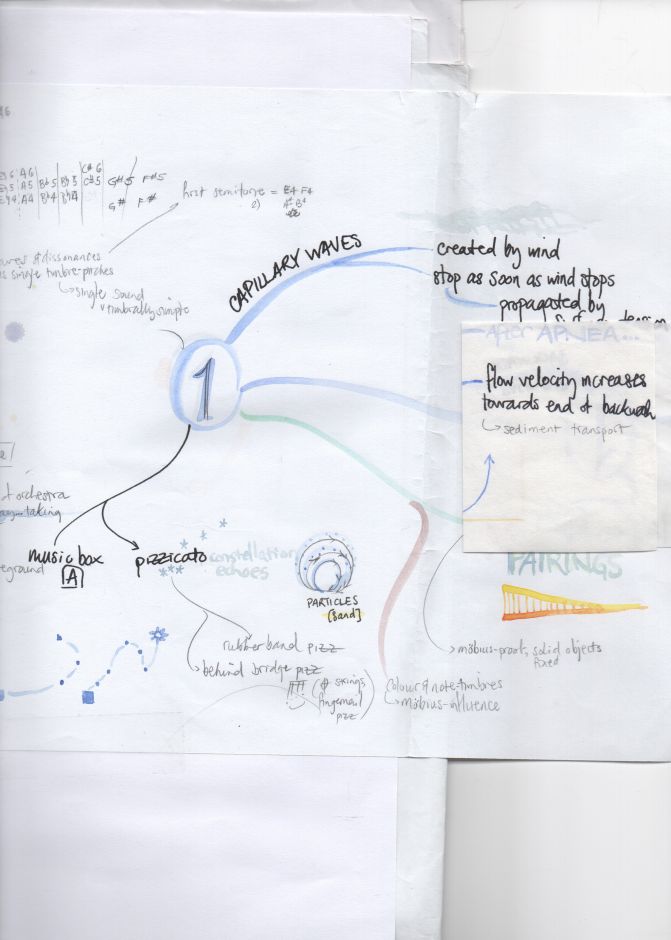 A6
A6
A5
A4
B♭5
B♭4
B♮5
B♮4
C#6
C#5
G#5 F#5
G# F#
first semitone = E4 F4
2)
of dissonances
single timbre-pitches
single sound
timbrally simple
CAPILLARY WAVES
created by wind
stop as soon as wind stops
propagated by
After APNEA...
flow velocity increases
towards end of backwash
sediment transport
1
of orchestra
taking
music box
A
pizzicato
constellation
echoes
PARTICLES
[sand]
PAIRINGS
rubber band pizz
behind bridge pizz
strings,
fingernail
pizz
möbius-proof, solid objects
fixed
colour of note-timbres
möbius-influence